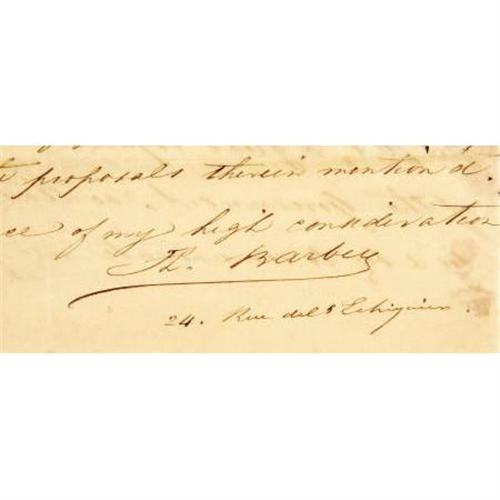 proposals therein mention'd.
of my high consideration
Th. Barbey
24. Rue de l'Echiquier.